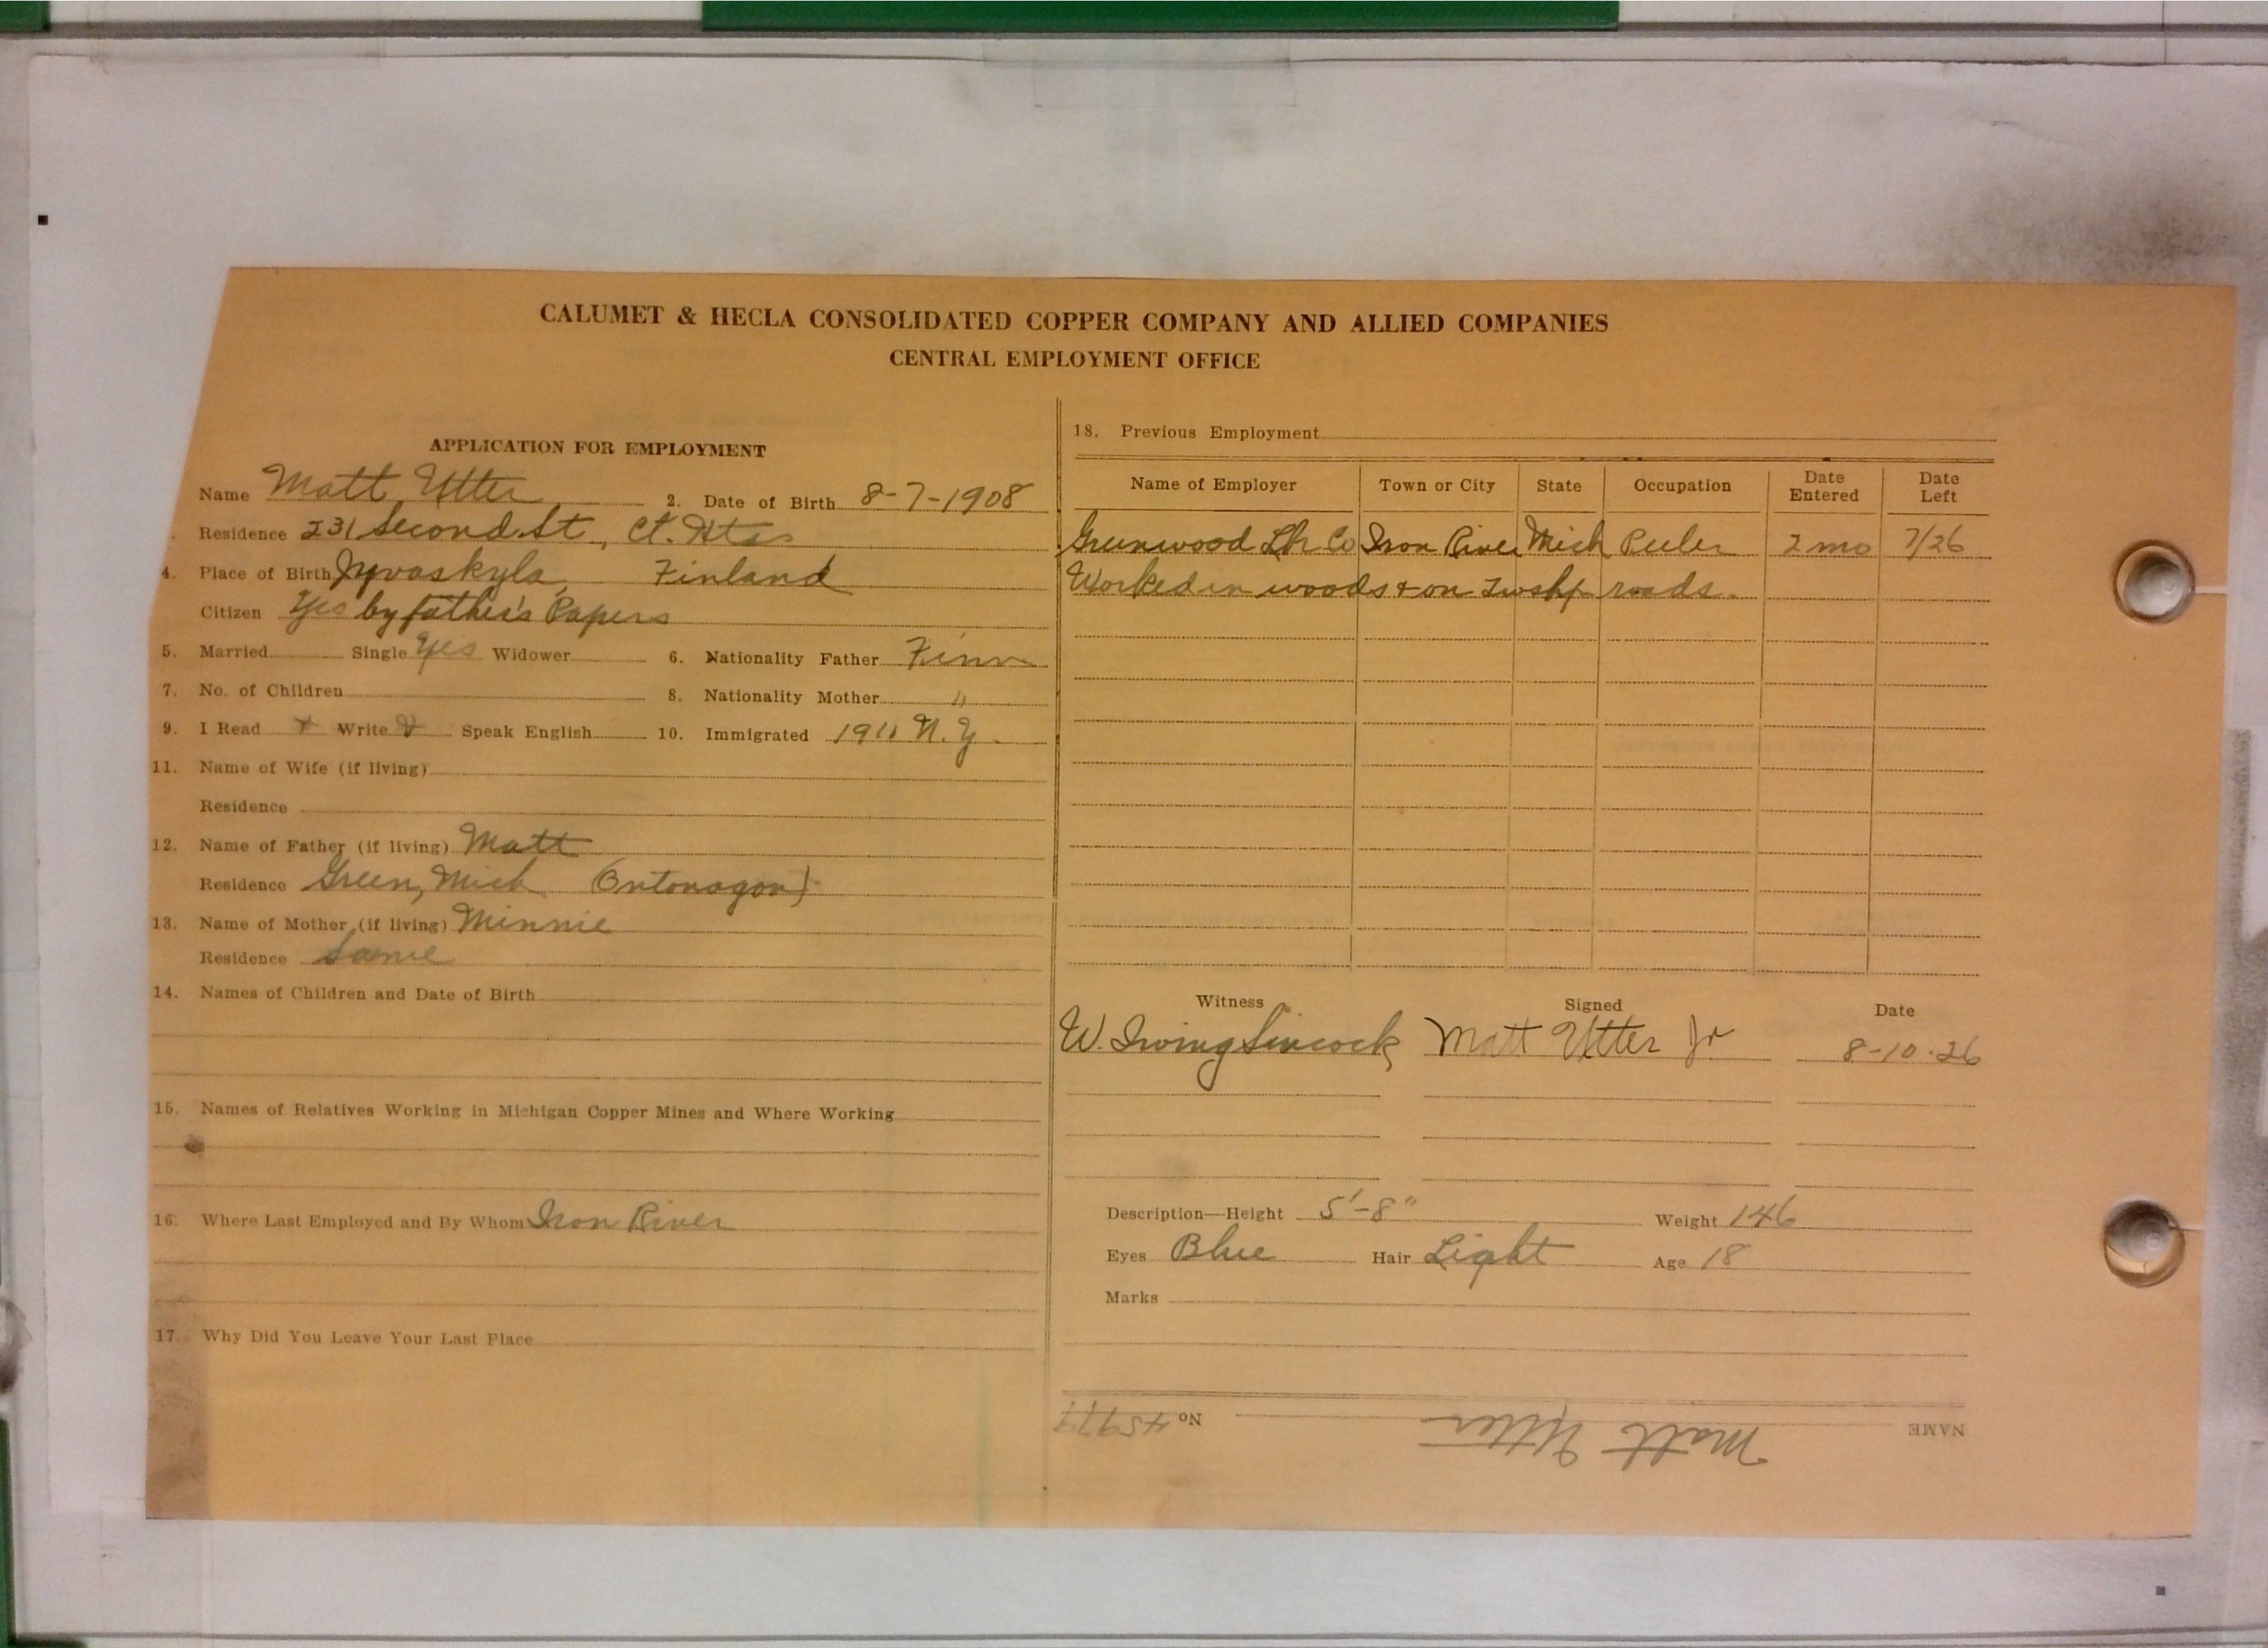 CALUMET & HECLA CONSOLIDATED COPPER COMPANY AND ALLIED COMPANIES
CENTRAL EMPLOYMENT OFFICE
APPLICATION FOR EMPLOYMENT
Name Matt Utter 2. Date of Birth 8-7-1908
Residence 231 Second St, Ct. Hts
4. Place of Birth Jyvaskyla, Finland
Citizen Yes by father's Papers
5. Married Single Yes Widower 6. Nationality Father Finn
7. No. of Children 8. Nationality Mother "
9. I Read Write Speak English 10. Immigrated 1911 N.Y.
11. Name of Wife (if living)
Residence
12. Name of Father (if living) Matt
Residence Green, Mich (Ontonagon)
13. Name of Mother (if living) Minnie
Residence Same
14. Names of Children and Date of Birth
15. Names of Relatives Working in Michigan Copper Mines and Where Working
16. Where Last Employed and By Whom Iron River
17. Why Did You Leave Your Last Place
18. Previous Employment
Name of Employer Town or City State Occupation Date Entered Date Left
Greenwood Lbr Co Iron River Mich Peeler 2 mo 7/26
Worked in woods & on twshp roads.
Witness Signed Date
W. Irving Sincock Matt Utter Jr 8-10-26
Description—Height 5'-8" Weight 146
Eyes Blue Hair Light Age 18
Marks
NAME Matt Utter No